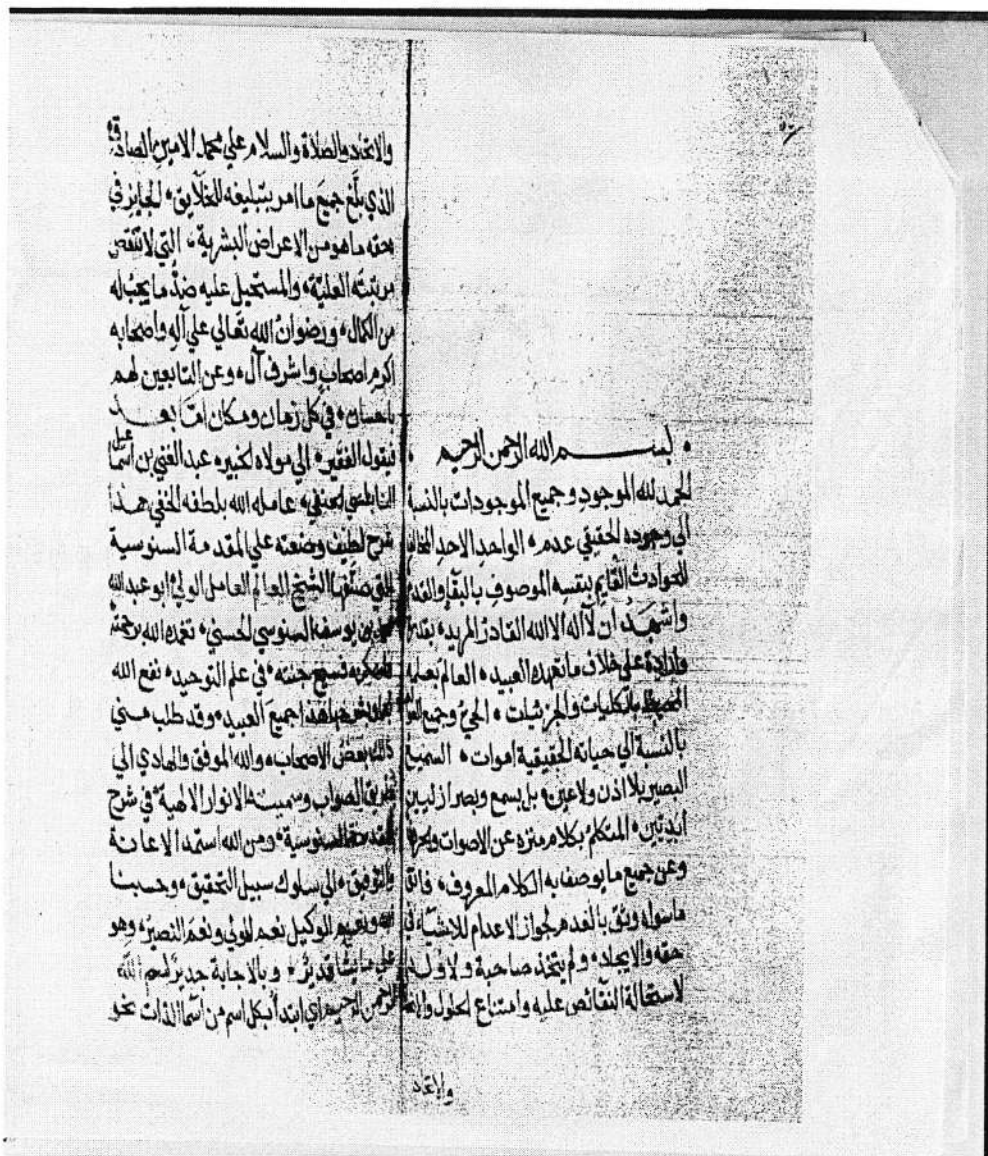 بسم الله الرحمن الرحيم
الحمد لله الموجود وجميع الموجودات بالنسبة
الي وجوده الحقيقي عدم الواحد الاحد
للحوادث القايم بنفسه الموصوف بالبقا والقدم
واشهد أن لا اله الا الله القادر المريد بقدرة
وارادة علي خلاف ما تعهده العبيد العالم بعلمه
المحيط بالكليات والجزئيات الحي وجميع
بالنسبة الي حياته الحقيقية اموات السميع
البصير بلا اذن ولا عين بل بسمع وبصر ازليين
أبديين المتكلم بكلام منزه عن الاصوات والحروف
وعن جميع ما يوصف به الكلام المعروف
ما سواه بالعدم لجواز الاعدام للاشياء في
حقه والايجاد ولم يتخذ صاحبة ولا ولد
لاستحالة النقائص عليه وامتناع الحلول
والاتحاد
والاتحاد والصلاة والسلام علي محمد الامين الصادق
الذي بلغ جميع ما امر بتبليغه للخلايق الجايز في
حقه ما هو من الاعراض البشرية التي لا تنقص
مرتبته العلية والمستحيل عليه ضد ما يجب له
من الكمال ورضوان الله تعالي علي آله واصحابه
اكرم اصحاب واشرف آل وعن التابعين لهم
باحسان في كل زمان ومكان امّا بعد
فيقول الفقير الي مولاه الخبير عبد الغني بن اسماعيل
النابلسي الحنفي عامله الله بلطفه الخفي هذا
شرح لطيف وضعته علي المقدمة السنوسية
التي صنفها الشيخ العالم العامل الولي ابو عبد الله
محمد بن يوسف السنوسي الحسني تغمده الله برحمته
فسيح جنته في علم التوحيد نفع الله
جميع العبيد وقد طلب مني
ذلك بعض الاصحاب والله الموفق والهادي الي
طريق الصواب وسميته الانوار الالهية في شرح
المقدمة السنوسية ومن الله استمد الاعانة
والتوفيق الي سلوك سبيل التحقيق وحسبنا
الله ونعم الوكيل نعم المولي ونعم النصير وهو
علي ما يشا قدير وبالاجابة جدير بسم الله
الرحمن الرحيم اي ابتدأ بكل اسم من اسما الذات نحو